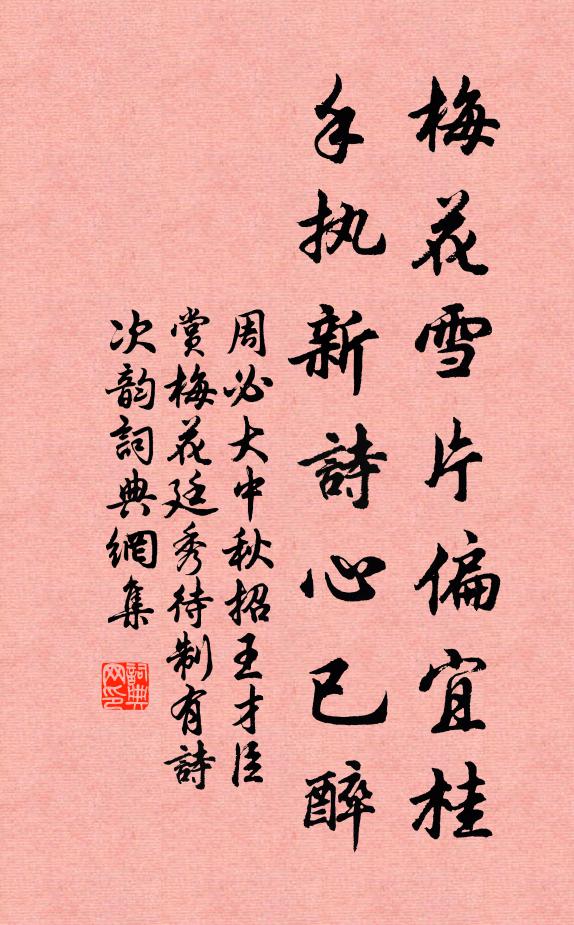 梅花雪片偏宜桂
手执新詩心已醉
周必大中秋招王才臣
赏梅花廷秀待制有詩
次韵詞典網集
詞典网印